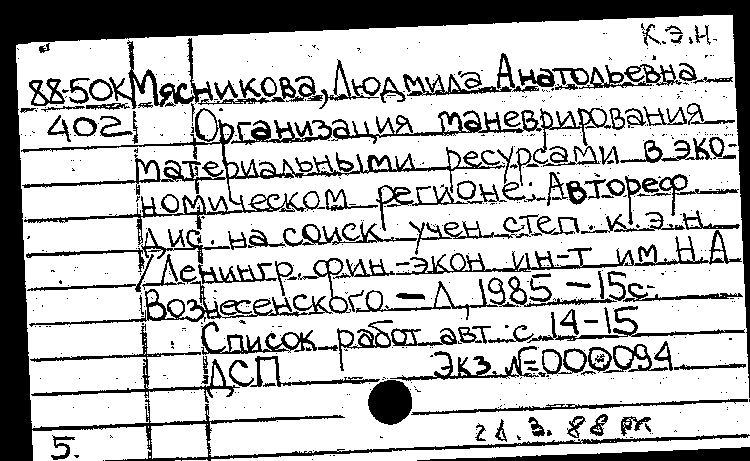 К.Э.Н.
88-50К Мясникова, Людмила Анатольевна
402 Организация маневрирования
материальными ресурсами в эко-
номическом регионе: Автореф.
дис. на соиск. учен. степ. к.э.н.
/Ленингр. фин.-экон. ин-т им. Н.А.
Вознесенского. — Л., 1985 — 15с.
Список работ авт.: с. 14-15
ДСП Экз. №000094
21.3.88
5.